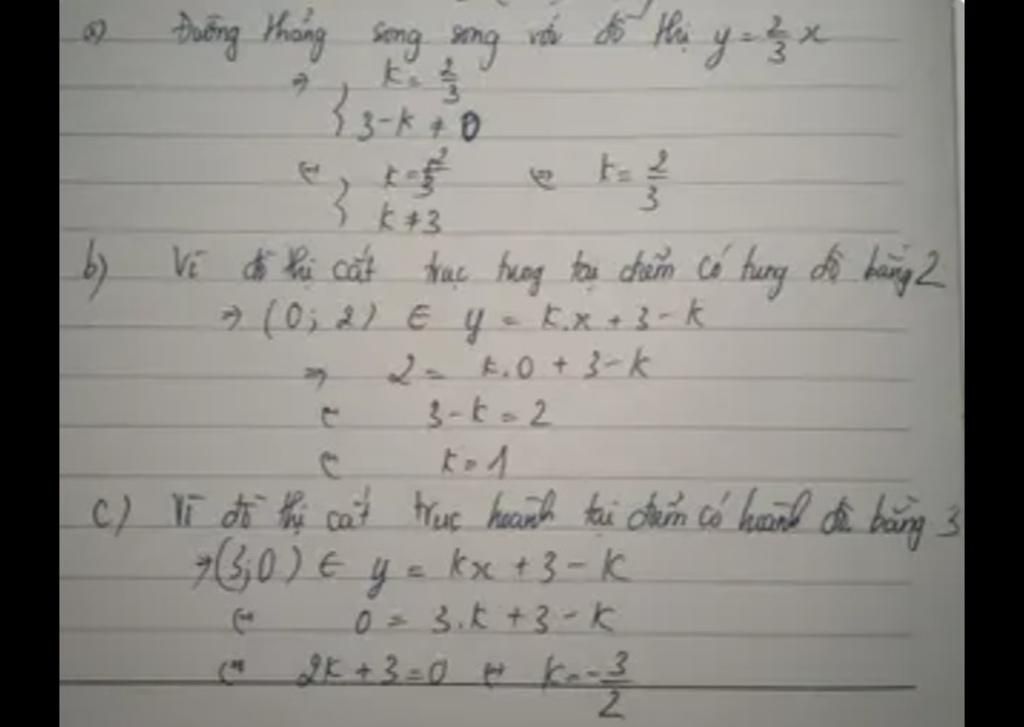 a) Đường thẳng song song với đồ thị y = 2/3 x
⇒ { k = 2/3
3 - k ≠ 0
⇔ { k = 2/3 ⇔ k = 2/3
k ≠ 3
b) Vì đồ thị cắt trục tung tại điểm có tung độ bằng 2
⇒ (0; 2) ∈ y = k.x + 3 - k
⇒ 2 = k.0 + 3 - k
⇔ 3 - k = 2
⇔ k = 1
c) Vì đồ thị cắt trục hoành tại điểm có hoành độ bằng 3
⇒ (3;0) ∈ y = kx + 3 - k
⇔ 0 = 3.k + 3 - k
⇔ 2k + 3 = 0 ⇔ k = -3/2